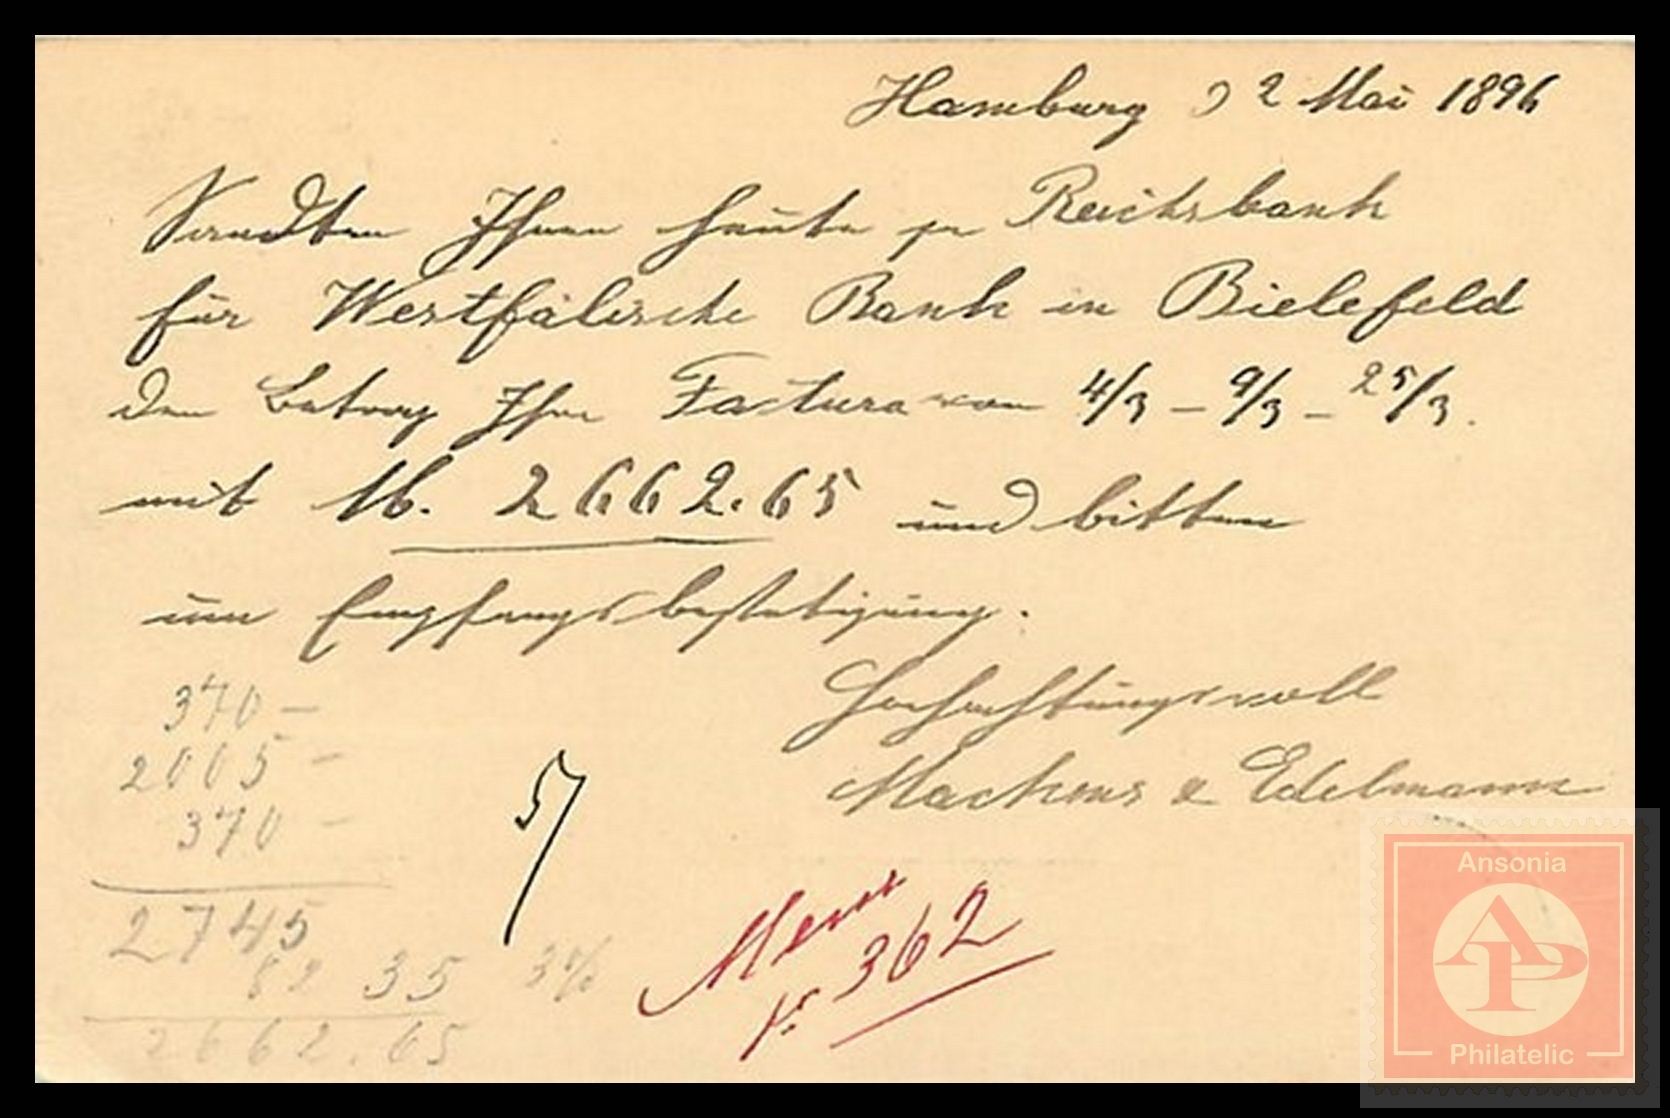 Hamburg d 2 Mai 1896
Sandten Ihnen heute per Reichsbank
für Westfälische Bank in Bielefeld
den Betrag Ihre Factura von 4/3 – 9/3 – 25/3.
mit M. 2662.65 und bitten
um Empfangsbestätigung.
Hochachtungsvoll
Machens & Edelmann
370 –
2005 –
370 –
2745
82 35 3%
2662.65
362
Ansonia
AP
Philatelic